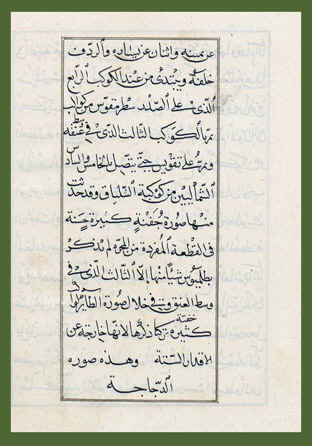 عن يمينه واثنان عن يساره والردف
خلفه ويبتدئ من عند الكوكب الرابع
الذى على الصدر سطر مقوس من كواكب
تمر بالكوكب الثالث الذى فى عنقه
ويمر على تقويس حتى يتصل بالخامس والسادس
الشماليين من كوكبة السلياق وقد حدث
منها صورة كبيرة حسنة
فى القطعة المفردة من المجرة لم يذكر
بطلميوس شيئا منها الا الثالث الذى فى
وسط العنق وفى خلال صورة الطائر كواكب
كثيرة تركنا ذكرها لانها خارجة عن
الاقدار الستة وهذه صورة
الدجاجة